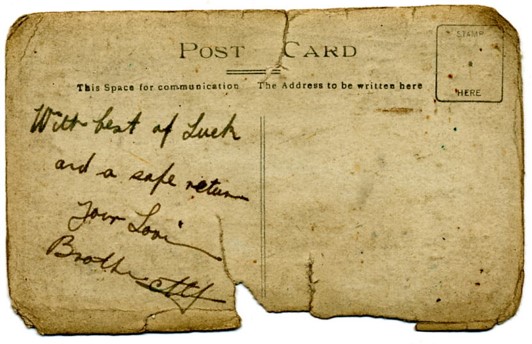 POST CARD
This Space for communication The Address to be written here
STAMP
HERE
With best of Luck
and a safe return
Your Lovi
Brothe Alf